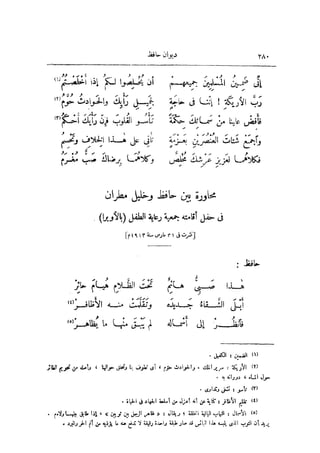 ٢٨٠ ديوان حافظ
إني ضمين المسلمين جميعهم أن يخلصوا لكم إذا أخلصتم (١)
رب الأريكة ! إننا في حاجة لجميل رأيك والحوادث حوم (٢)
فأفض علينا من سمائك حكمة تأسو القلوب فإن رأيك أحكم (٣)
وأجمع شتات العنصرين بعزمة تأتي على هذا الخلاف وتحسم
فكلاهما لعزيز عرشك مخلص وكلاهما برضاك صب مغرم
محاورة بين حافظ وخليل مطران
في حفل أقامته جمعية رعاية الطفل (بالأوبرا)
[نشرت في ٣١ مارس سنة ١٩١٣م]
حافظ :
هذا صبي هائم تحت الظلام هيام حائر
أبلى الشقاء جديده وتقلمت منه الأظافر (٤)
فانظر إلى أسماله لم يبق منها ما يظاهر (٥)
(١) الضمين : الكفيل .
(٢) الأريكة : سرير الملك . والحوادث حوم ، أي تطوف بنا وتحلق حوالينا ، وأصله من تحويم الطائر
حول الماء ، دورانه به .
(٣) تأسو : تشفي وتداوي .
(٤) تقليم الأظافر : كناية عن أنه أعزل من أسلحة الحياة في الحياة .
(٥) الأسمال : الثياب البالية الخلقة ؛ ويقال : « ظاهر الرجل بين ثوبين » إذا طابق بينهما ولاءم .
يريد أن الثوب الذي يلبسه هذا البائس قد صار طبقة واحدة رقيقة لا تدفع عنه ما يؤذيه من أثر الحر والبرد .